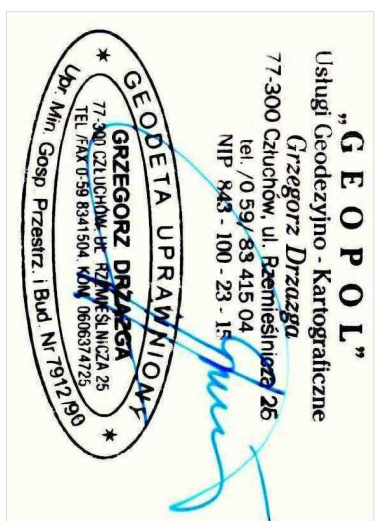 „GEOPOL”
Usługi Geodezyjno - Kartograficzne
Grzegorz Drzazga
77-300 Człuchów, ul. Rzemieślnicza 25
tel. /0 59/ 83 415 04
NIP 843 - 100 - 23 - 15
GEODETA UPRAWNIONY
GRZEGORZ DRZAZGA
77-300 CZŁUCHÓW, UL. RZEMIEŚLNICZA 25
TEL./FAX 0-59 8341504, KOM. 0606374725
* Upr. Min. Gosp. Przestrz. i Bud. Nr 7912/90 *